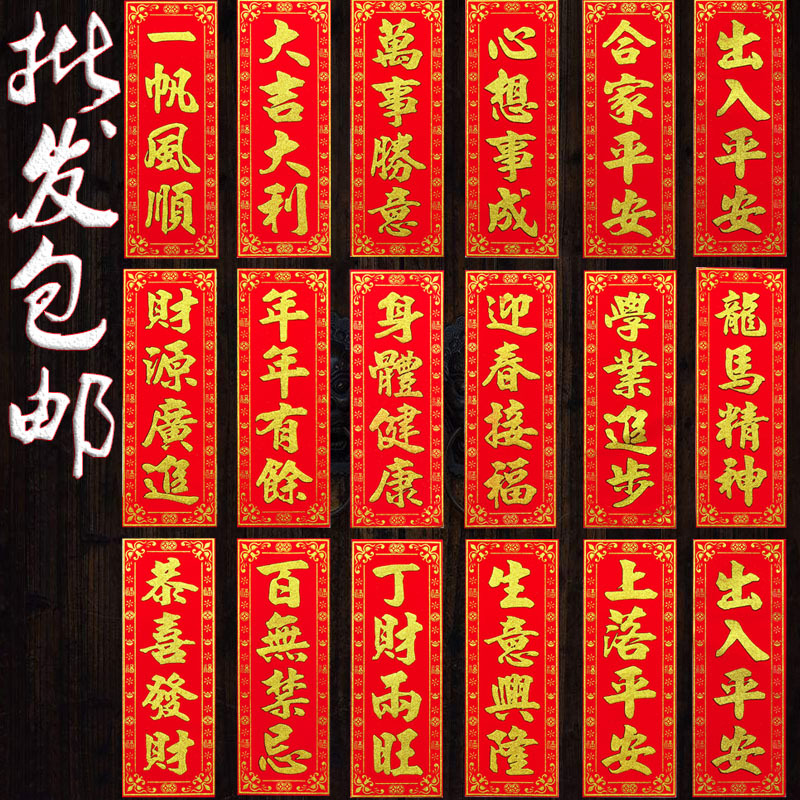 批发包邮
一帆風順
大吉大利
萬事勝意
心想事成
合家平安
出入平安
財源廣進
年年有餘
身體健康
迎春接福
學業進步
龍馬精神
恭喜發財
百無禁忌
丁財兩旺
生意興隆
上落平安
出入平安